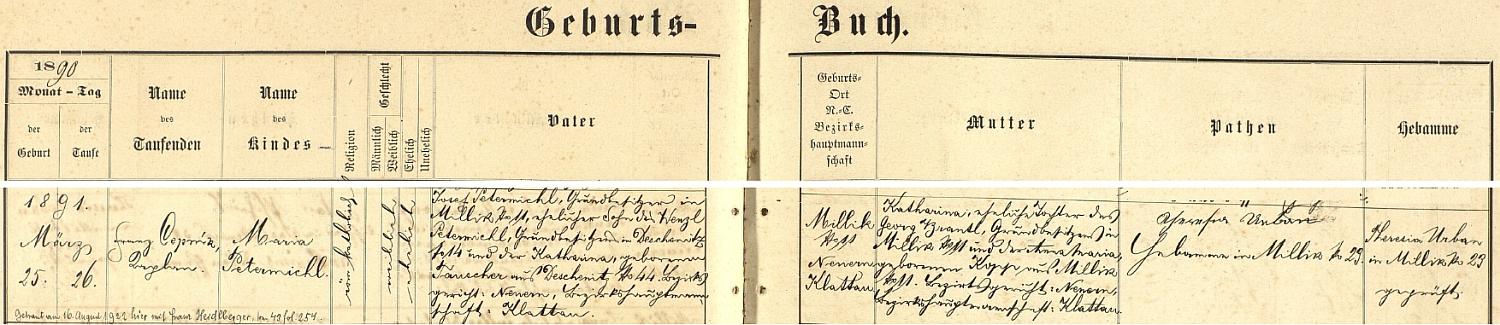 Geburts-
Buch.
1890
Monat - Tag
der Geburt
der Taufe
Name des Taufenden
Name des Kindes
Religion
Geschlecht
Männlich
Weiblich
Ehelich
Unehelich
Vater
Geburts-
Ort
N.-C.
Bezirks-
hauptmann-
schaft
Mutter
Pathen
Hebamme
1891.
März
25. 26.
Franz
Kaplan.
Maria
Petermichl.
röm. katholisch
weiblich
ehelich
Josef Petermichl, Grundbesitzer in
Millik No 11, ehelicher Sohn des Wenzl
Petermichl, Grundbesitzers in Deschenitz
No 14 und der Katharina, geborenen
Tauscher aus Deschenitz No 44. Bezirks
gericht: Neuern, Bezirkshauptmann
schaft: Klattau.
Millik
No 11
Neuern
Klattau
Katharina, eheliche Tochter des
Georg Brantl, Grundbesitzers in
Millik No 11 und der Anna Maria,
geborenen Kopp aus Millik
No 11. Bezirksgericht: Neuern,
Bezirkshauptmannschaft: Klattau.
Theresia Urban
Hebamme in Millik No 23.
Theresia Urban
in Millik No 23
geprüft.
Getraut am 16. August 1922 hier mit Franz